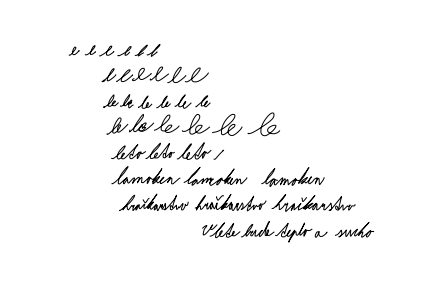 l l l l l l
le le le le le le
le le le le le le
leto leto leto /
lamoken lamoken lamoken
hračkarstvo hračkarstvo hračkarstvo
V lete bude teplo a sucho